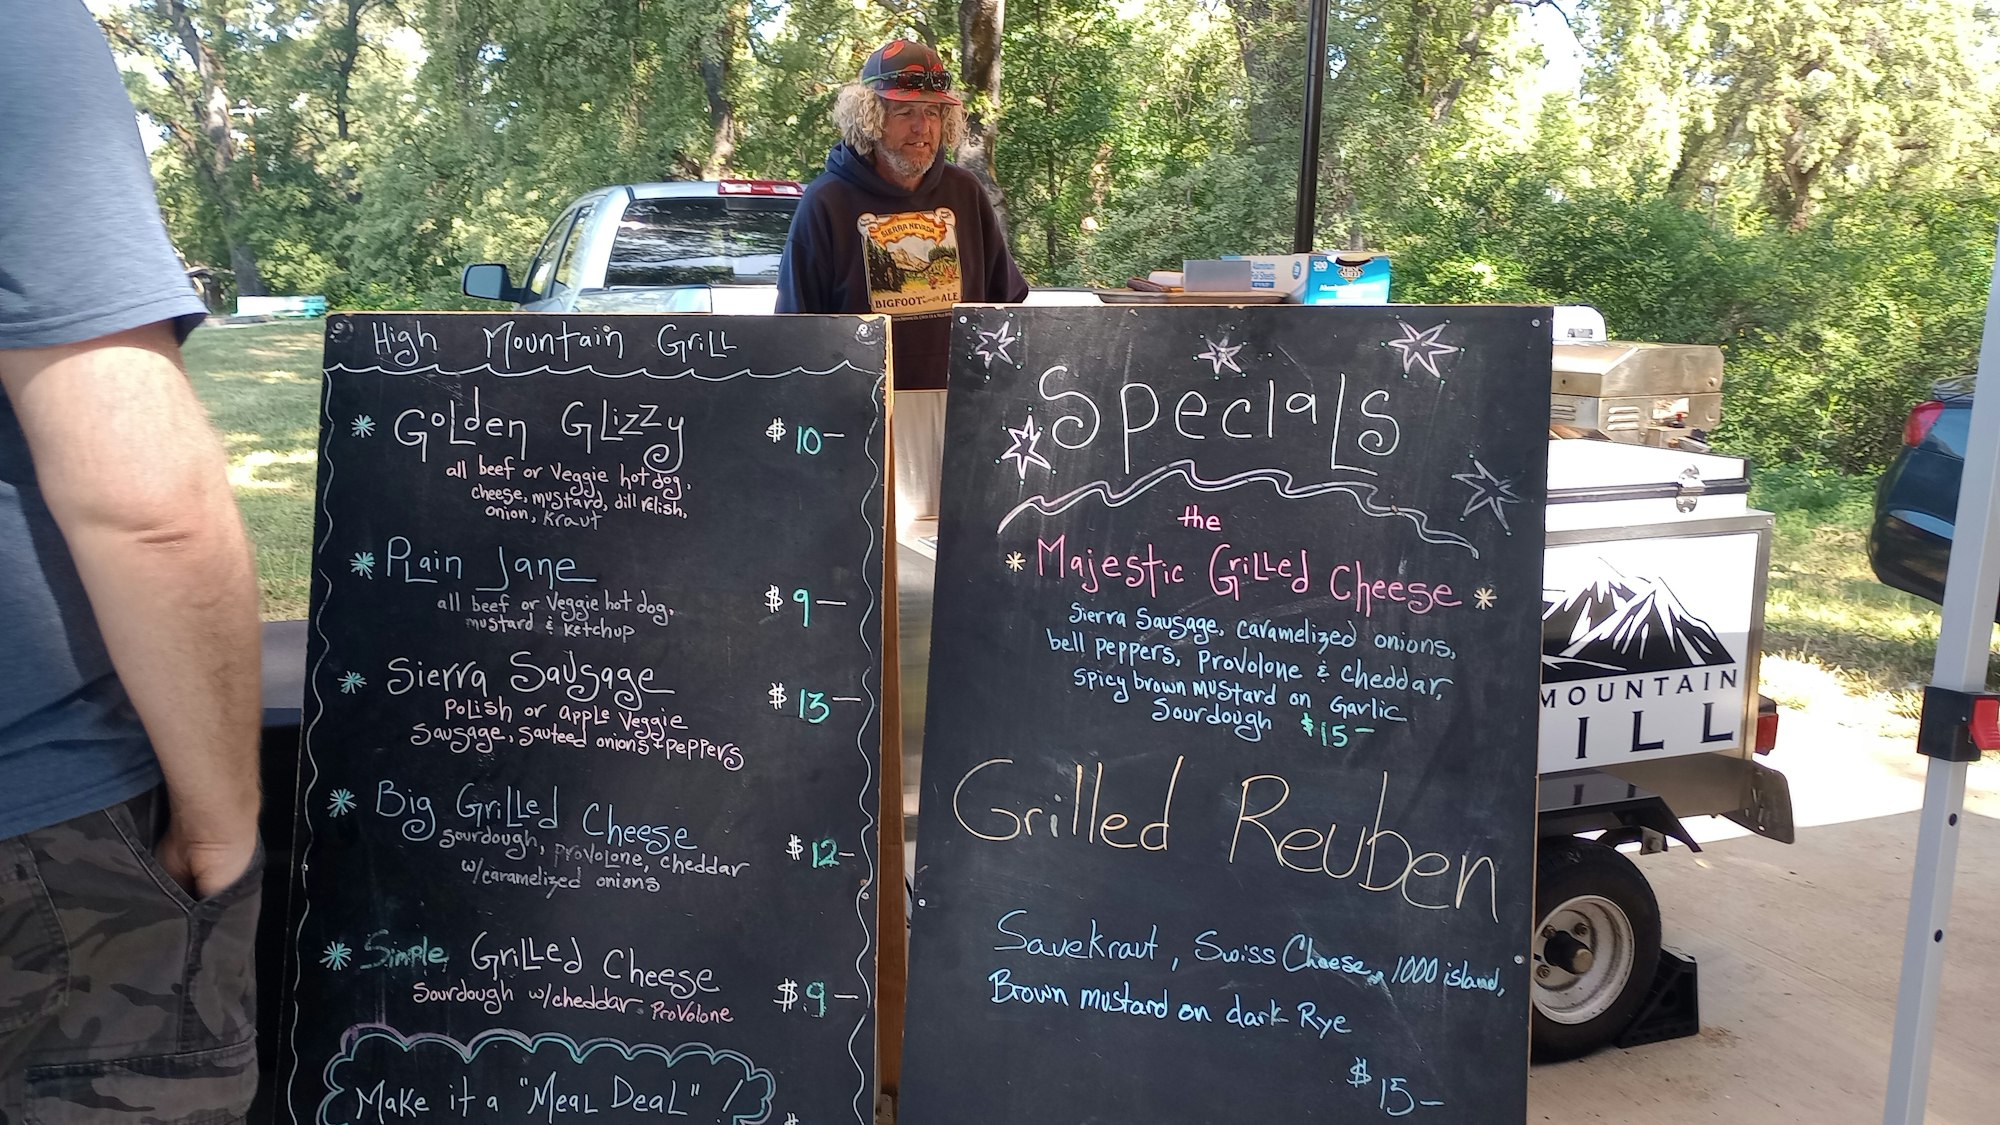 High Mountain Grill
Golden Glizzy $10-
all beef or Veggie hot dog,
cheese, mustard, dill relish,
onion, kraut
Plain Jane $9-
all beef or Veggie hot dog,
mustard & ketchup
Sierra Sausage $13-
Polish or apple Veggie
Sausage, sauteed onions + peppers
Big Grilled Cheese $12-
sourdough, provolone, cheddar
w/caramelized onions
Simple Grilled Cheese $9-
sourdough w/cheddar Provolone
Make it a "Meal Deal"!
$
Specials
the
Majestic Grilled Cheese
Sierra Sausage, caramelized onions,
bell peppers, provolone & cheddar,
spicy brown mustard on Garlic
Sourdough $15-
Grilled Reuben
Sauekraut, Swiss Cheese, 1000 island,
Brown mustard on dark Rye
$15-
SIERRA NEVADA
BIGFOOT ALE
500
MOUNTAIN
ILL